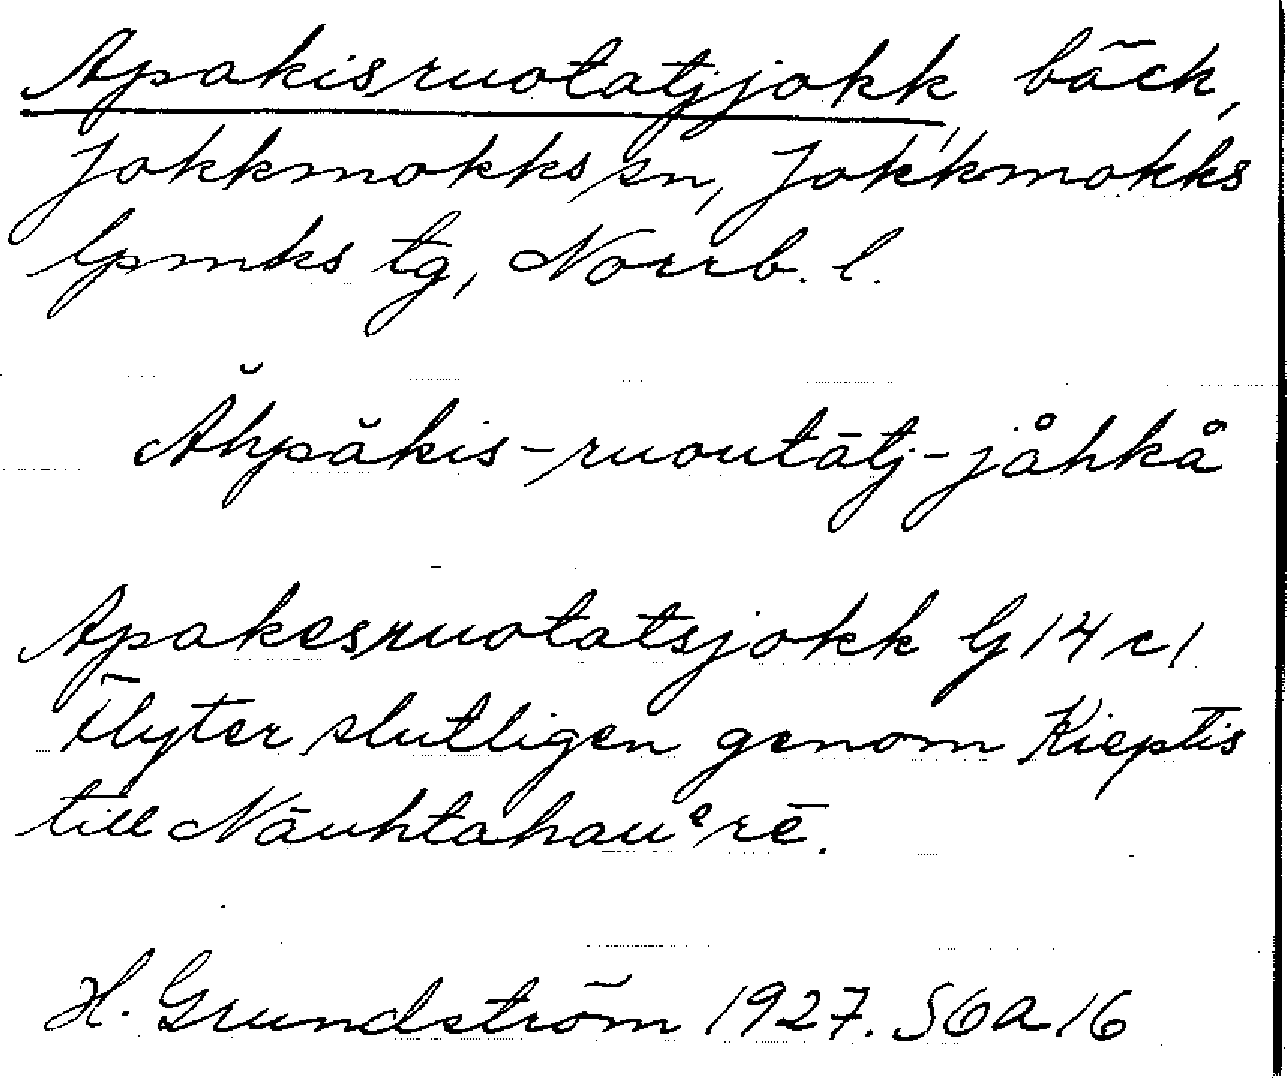 Apakisruotatjjokk bäck,
Jokkmokks sn, Jokkmokks
lpmks tg, Norrb. l.
Ăhpăkis-ruoutātj-jåhkå
Apakesruotatsjokk G 14 c 1
Flyter slutligen genom Kieptis
till Näuhtahauᵉrē.
H. Grundström 1927. S6A16